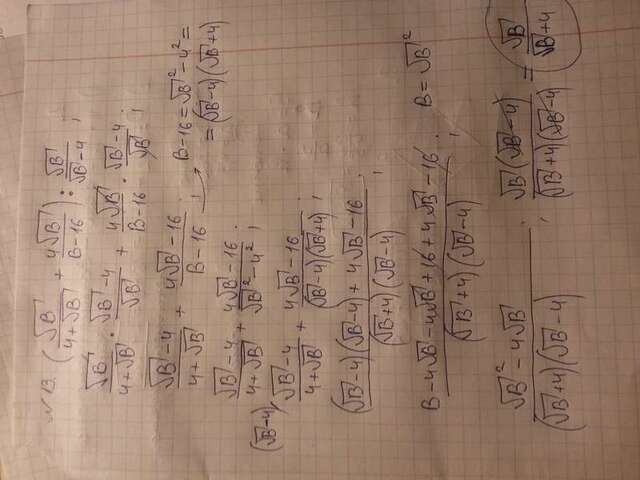 N 13. (√B/(4+√B) + 4√B/(B-16)) : √B/(√B-4) ;
√B/(4+√B) · (√B-4)/√B + 4√B/(B-16) · (√B-4)/√B ;
(√B-4)/(4+√B) + (4√B-16)/(B-16) ; → B-16 = √B² - 4² =
= (√B-4)(√B+4)
(√B-4)/(4+√B) + (4√B-16)/(√B²-4²) ;
(√B-4) (√B-4)/(4+√B) + (4√B-16)/((√B-4)(√B+4)) ;
((√B-4)(√B-4) + 4√B-16)/((√B+4)(√B-4)) ;
(B-4√B-4√B+16+4√B-16)/((√B+4)(√B-4)) ; B = √B²
(√B²-4√B)/((√B+4)(√B-4)) ; √B(√B-4)/((√B+4)(√B-4)) = √B/(√B+4)